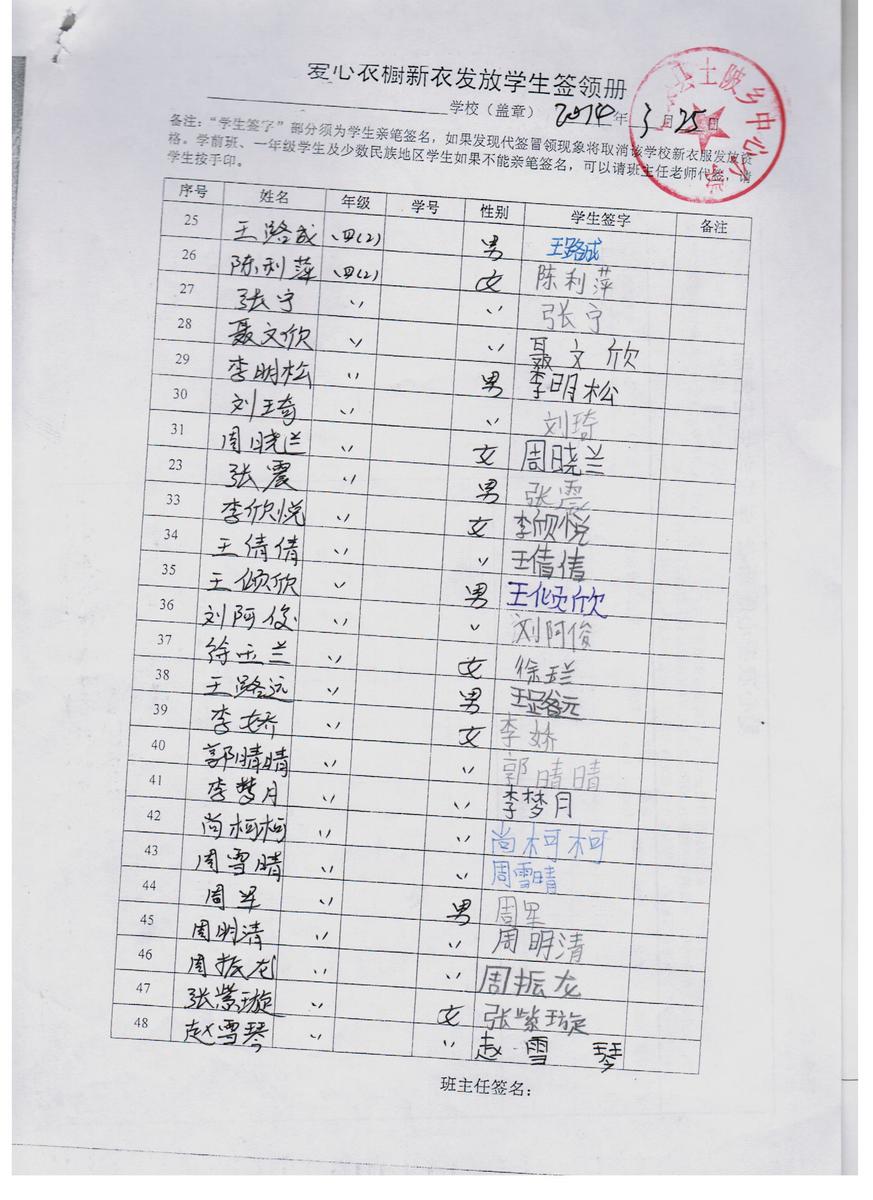 爱心衣橱新衣发放学生签领册
学校（盖章） 2014年3月25日
县土陂乡中心小学
备注：“学生签字”部分须为学生亲笔签名，如果发现代签冒领现象将取消该学校新衣服发放资
格。学前班、一年级学生及少数民族地区学生如果不能亲笔签名，可以请班主任老师代签，请
学生按手印。
序号 姓名 年级 学号 性别 学生签字 备注
25 王路成 四(2) 男 王路成
26 陈利萍 四(2) 女 陈利萍
27 张宁 〃 〃 张宁
28 聂文欣 〃 〃 聂文欣
29 李明松 〃 男 李明松
30 刘琦 〃 〃 刘琦
31 周晓兰 〃 女 周晓兰
23 张震 〃 男 张震
33 李欣悦 〃 女 李欣悦
34 王倩倩 〃 〃 王倩倩
35 王倾欣 〃 男 王倾欣
36 刘阿俊 〃 〃 刘阿俊
37 徐玉兰 〃 女 徐玉兰
38 王路远 〃 男 王路元
39 李娇 〃 女 李娇
40 郭晴晴 〃 〃 郭晴晴
41 李梦月 〃 〃 李梦月
42 尚柯柯 〃 〃 尚柯柯
43 周雪晴 〃 〃 周雪晴
44 周军 〃 男 周军
45 周明清 〃 〃 周明清
46 周振龙 〃 〃 周振龙
47 张紫璇 〃 女 张紫璇
48 赵雪琴 〃 〃 赵雪琴
班主任签名：